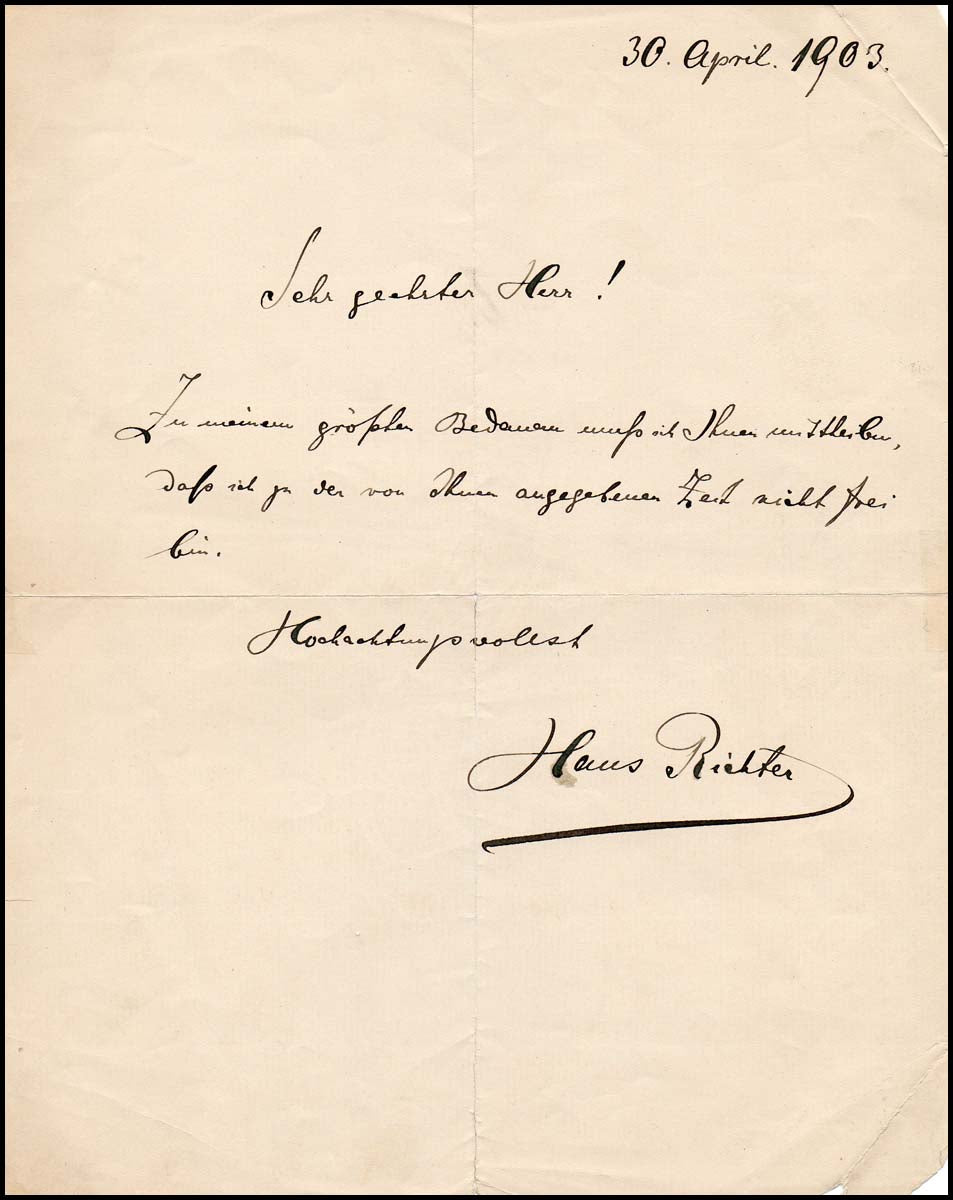 30. April. 1903.
Sehr geehrter Herr!
Zu meinem größten Bedauern muß ich Ihnen mittheilen,
daß ich zu der von Ihnen angegebenen Zeit nicht frei
bin.
Hochachtungsvollst
Hans Richter